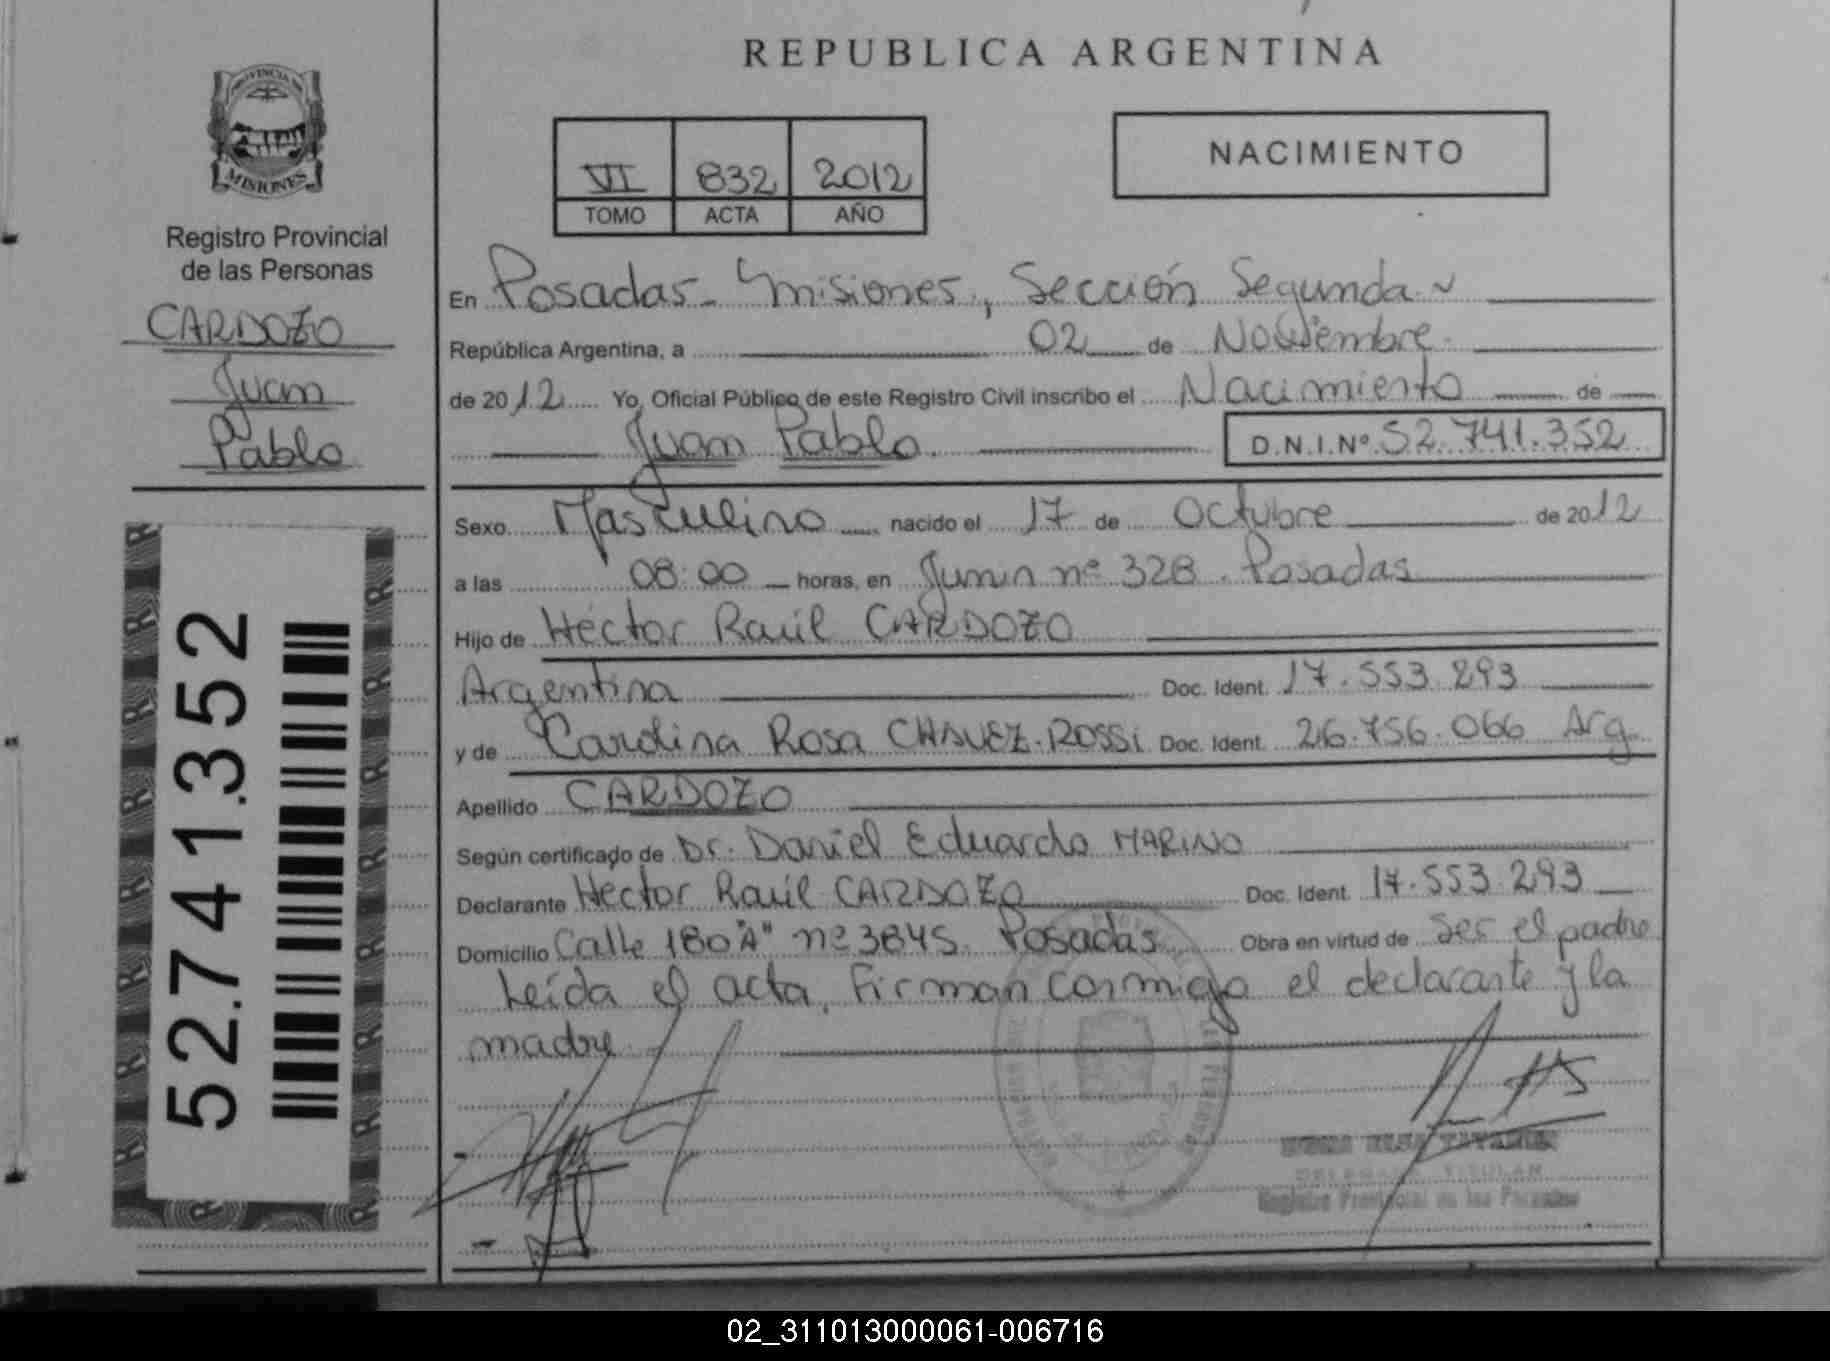 REPUBLICA ARGENTINA
PROVINCIA DE
MISIONES
Registro Provincial
de las Personas
CARDOZO
Juan
Pablo
52.741.352
VI 832 2012
TOMO ACTA AÑO
NACIMIENTO
En Posadas - Misiones, Sección Segunda
República Argentina, a 02 de Noviembre
de 2012 Yo, Oficial Público de este Registro Civil inscribo el Nacimiento de
Juan Pablo D.N.I.Nº 52.741.352
Sexo Masculino nacido el 17 de Octubre de 2012
a las 08:00 horas, en Junin nº 328. Posadas
Hijo de Héctor Raúl CARDOZO
Argentina Doc. Ident. 17.553.293
y de Carolina Rosa CHAVEZ-ROSSI Doc. Ident. 26.756.066 Arg.
Apellido CARDOZO
Según certificado de Dr. Daniel Eduardo MARINO
Declarante Hector Raúl CARDOZO Doc. Ident. 17.553.293
Domicilio Calle 180 "A" nº 3845. Posadas Obra en virtud de ser el padre
Leída el acta, Firman conmigo el declarante y la
madre
TITULAR
Registro Provincial de las Personas
02_311013000061-006716